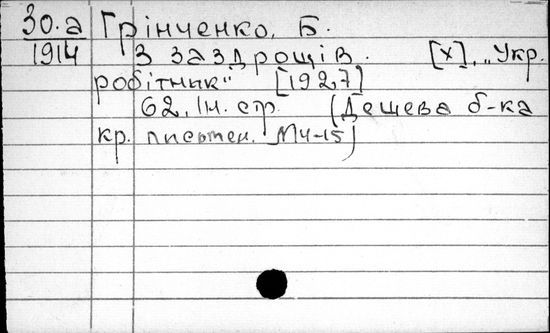 30.a Грінченко, Б.
1914 З заздрощів. [х], „Укр.
робітник“ [1927]
62, Ін. стр. (Дешева б-ка
кр. письмен. №4-15)